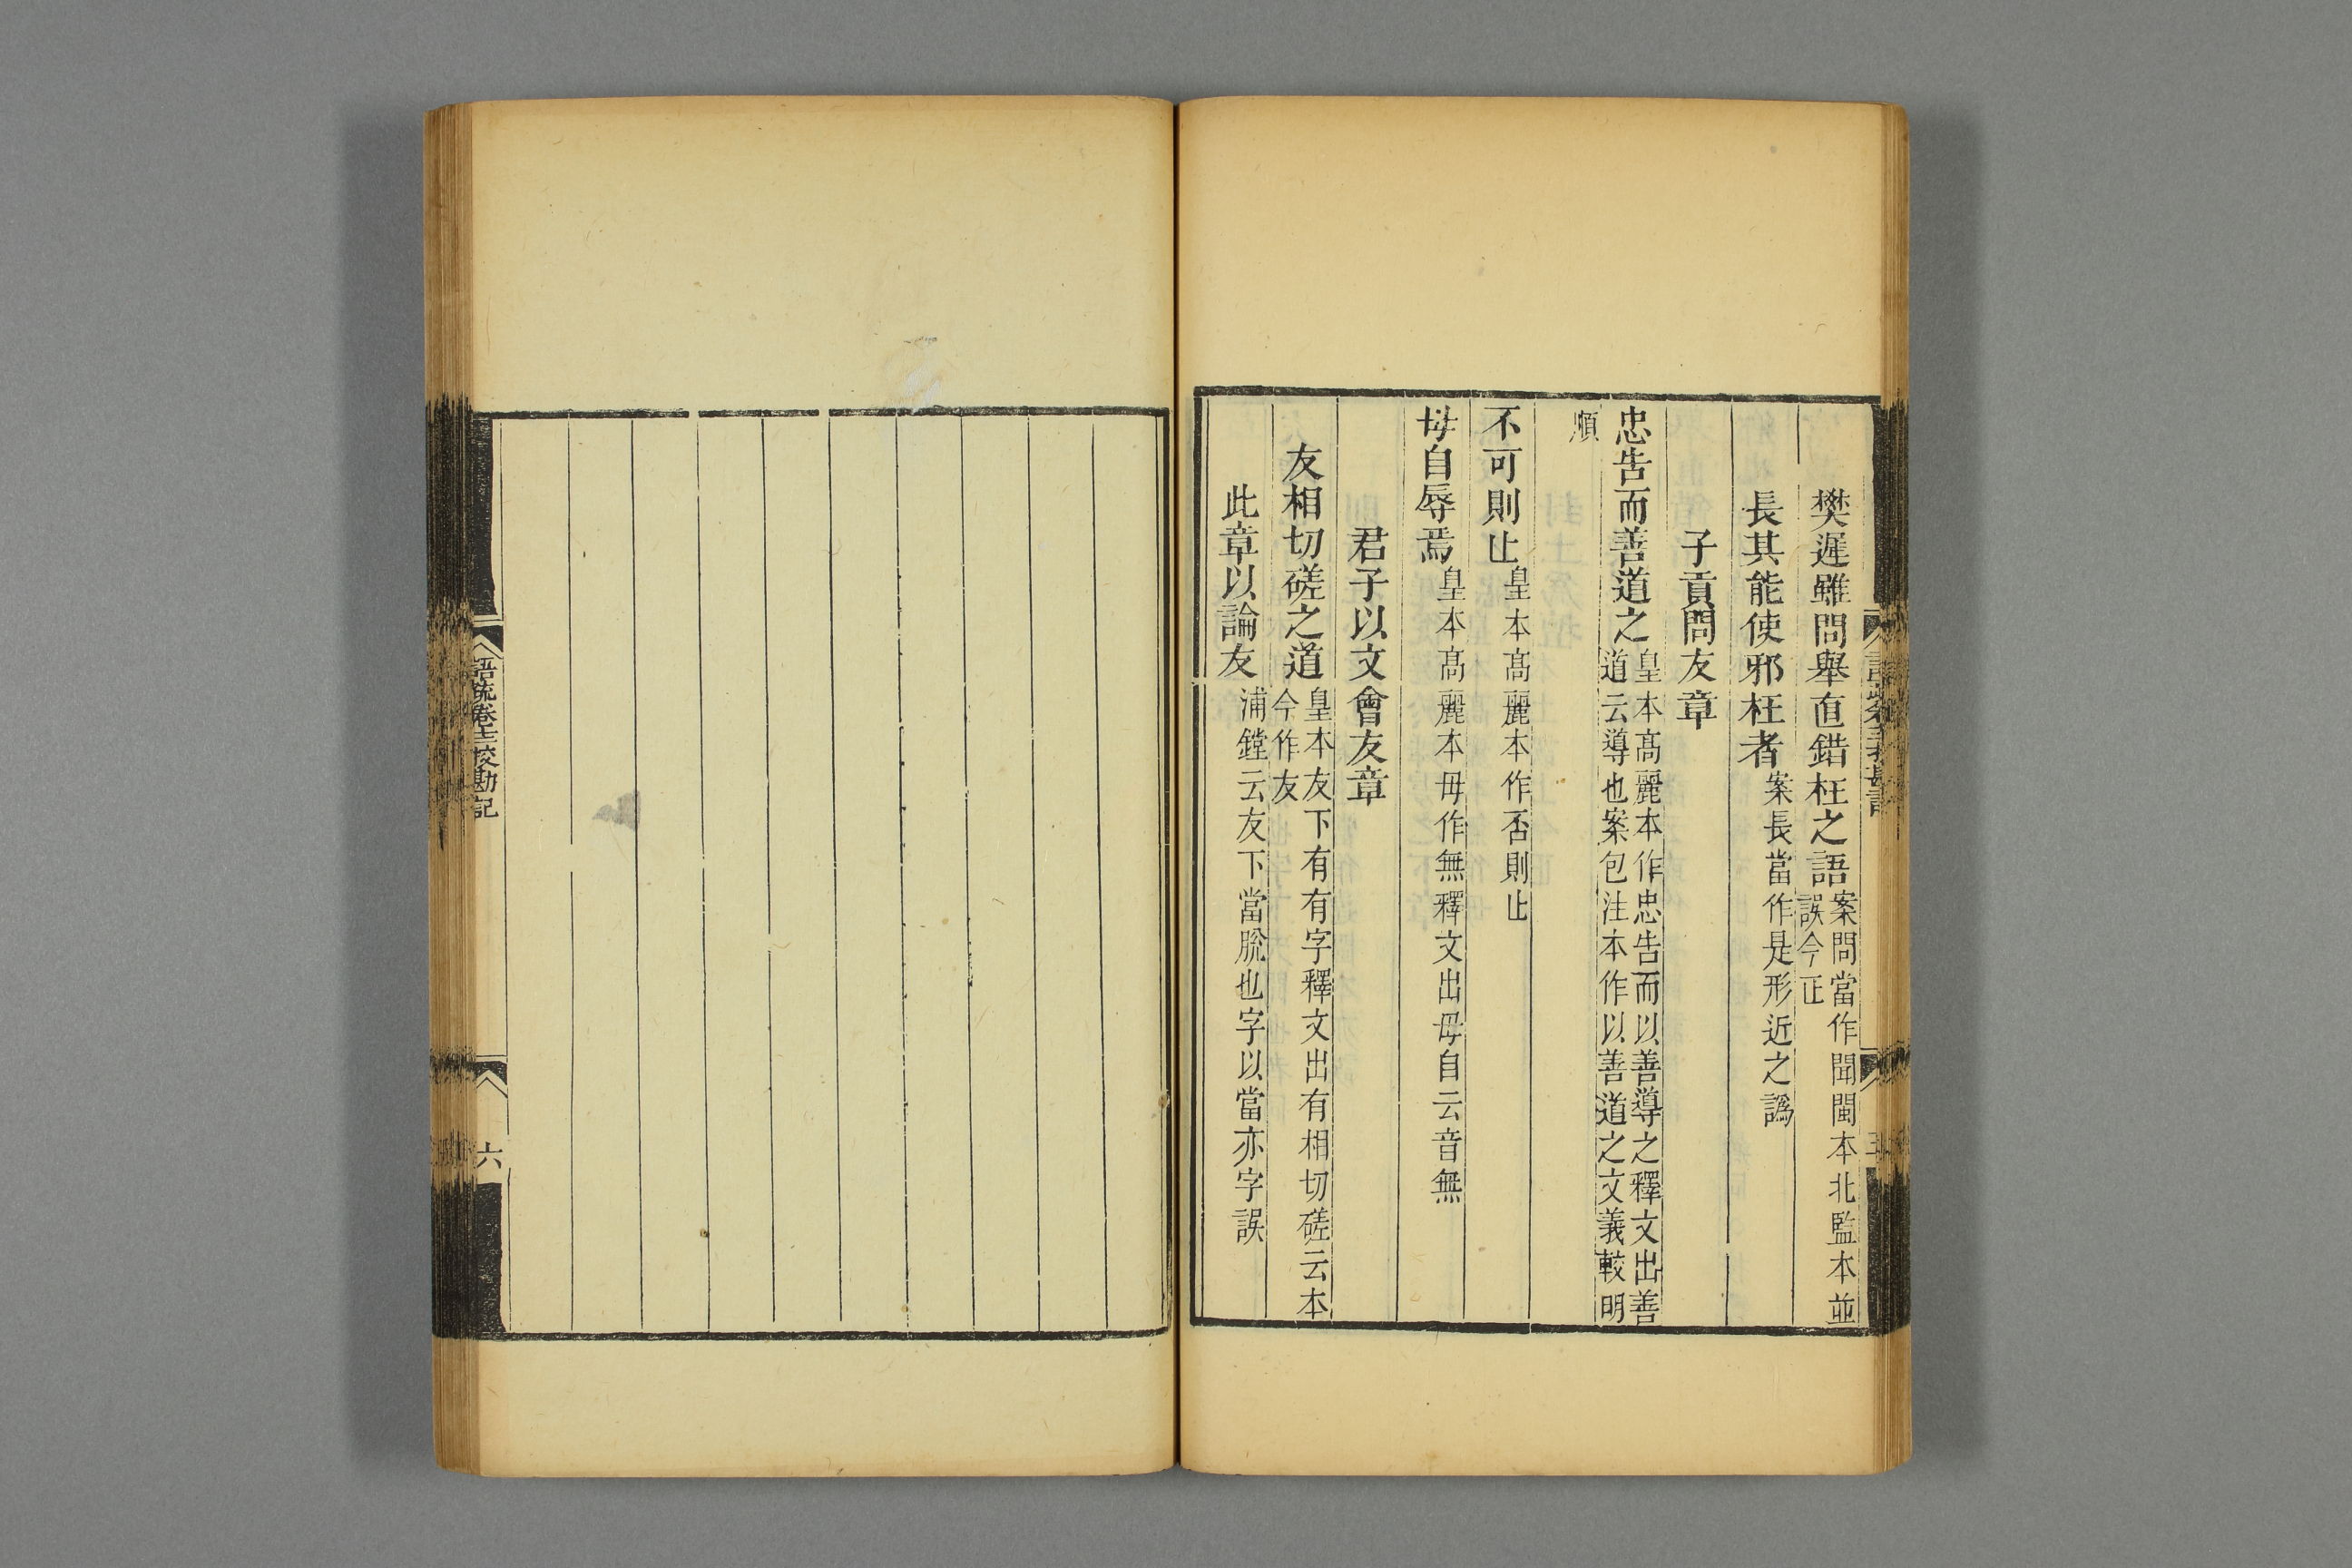 樊遲雖問舉直錯枉之語案問當作聞閩本北監本並誤今正
長其能使邪枉者案長當作是形近之譌
子貢問友章
忠告而善道之皇本髙麗本作忠告而以善導之釋文出善道云導也案包注本作以善道之文義較明
順
不可則止皇本髙麗本作否則止
毋自辱焉皇本髙麗本毋作無釋文出毋自云音無
君子以文會友章
友相切磋之道皇本友下有有字釋文出有相切磋云本今作友
此章以論友浦鏜云友下當脫也字以當亦字誤
語疏卷十二校勘記
六